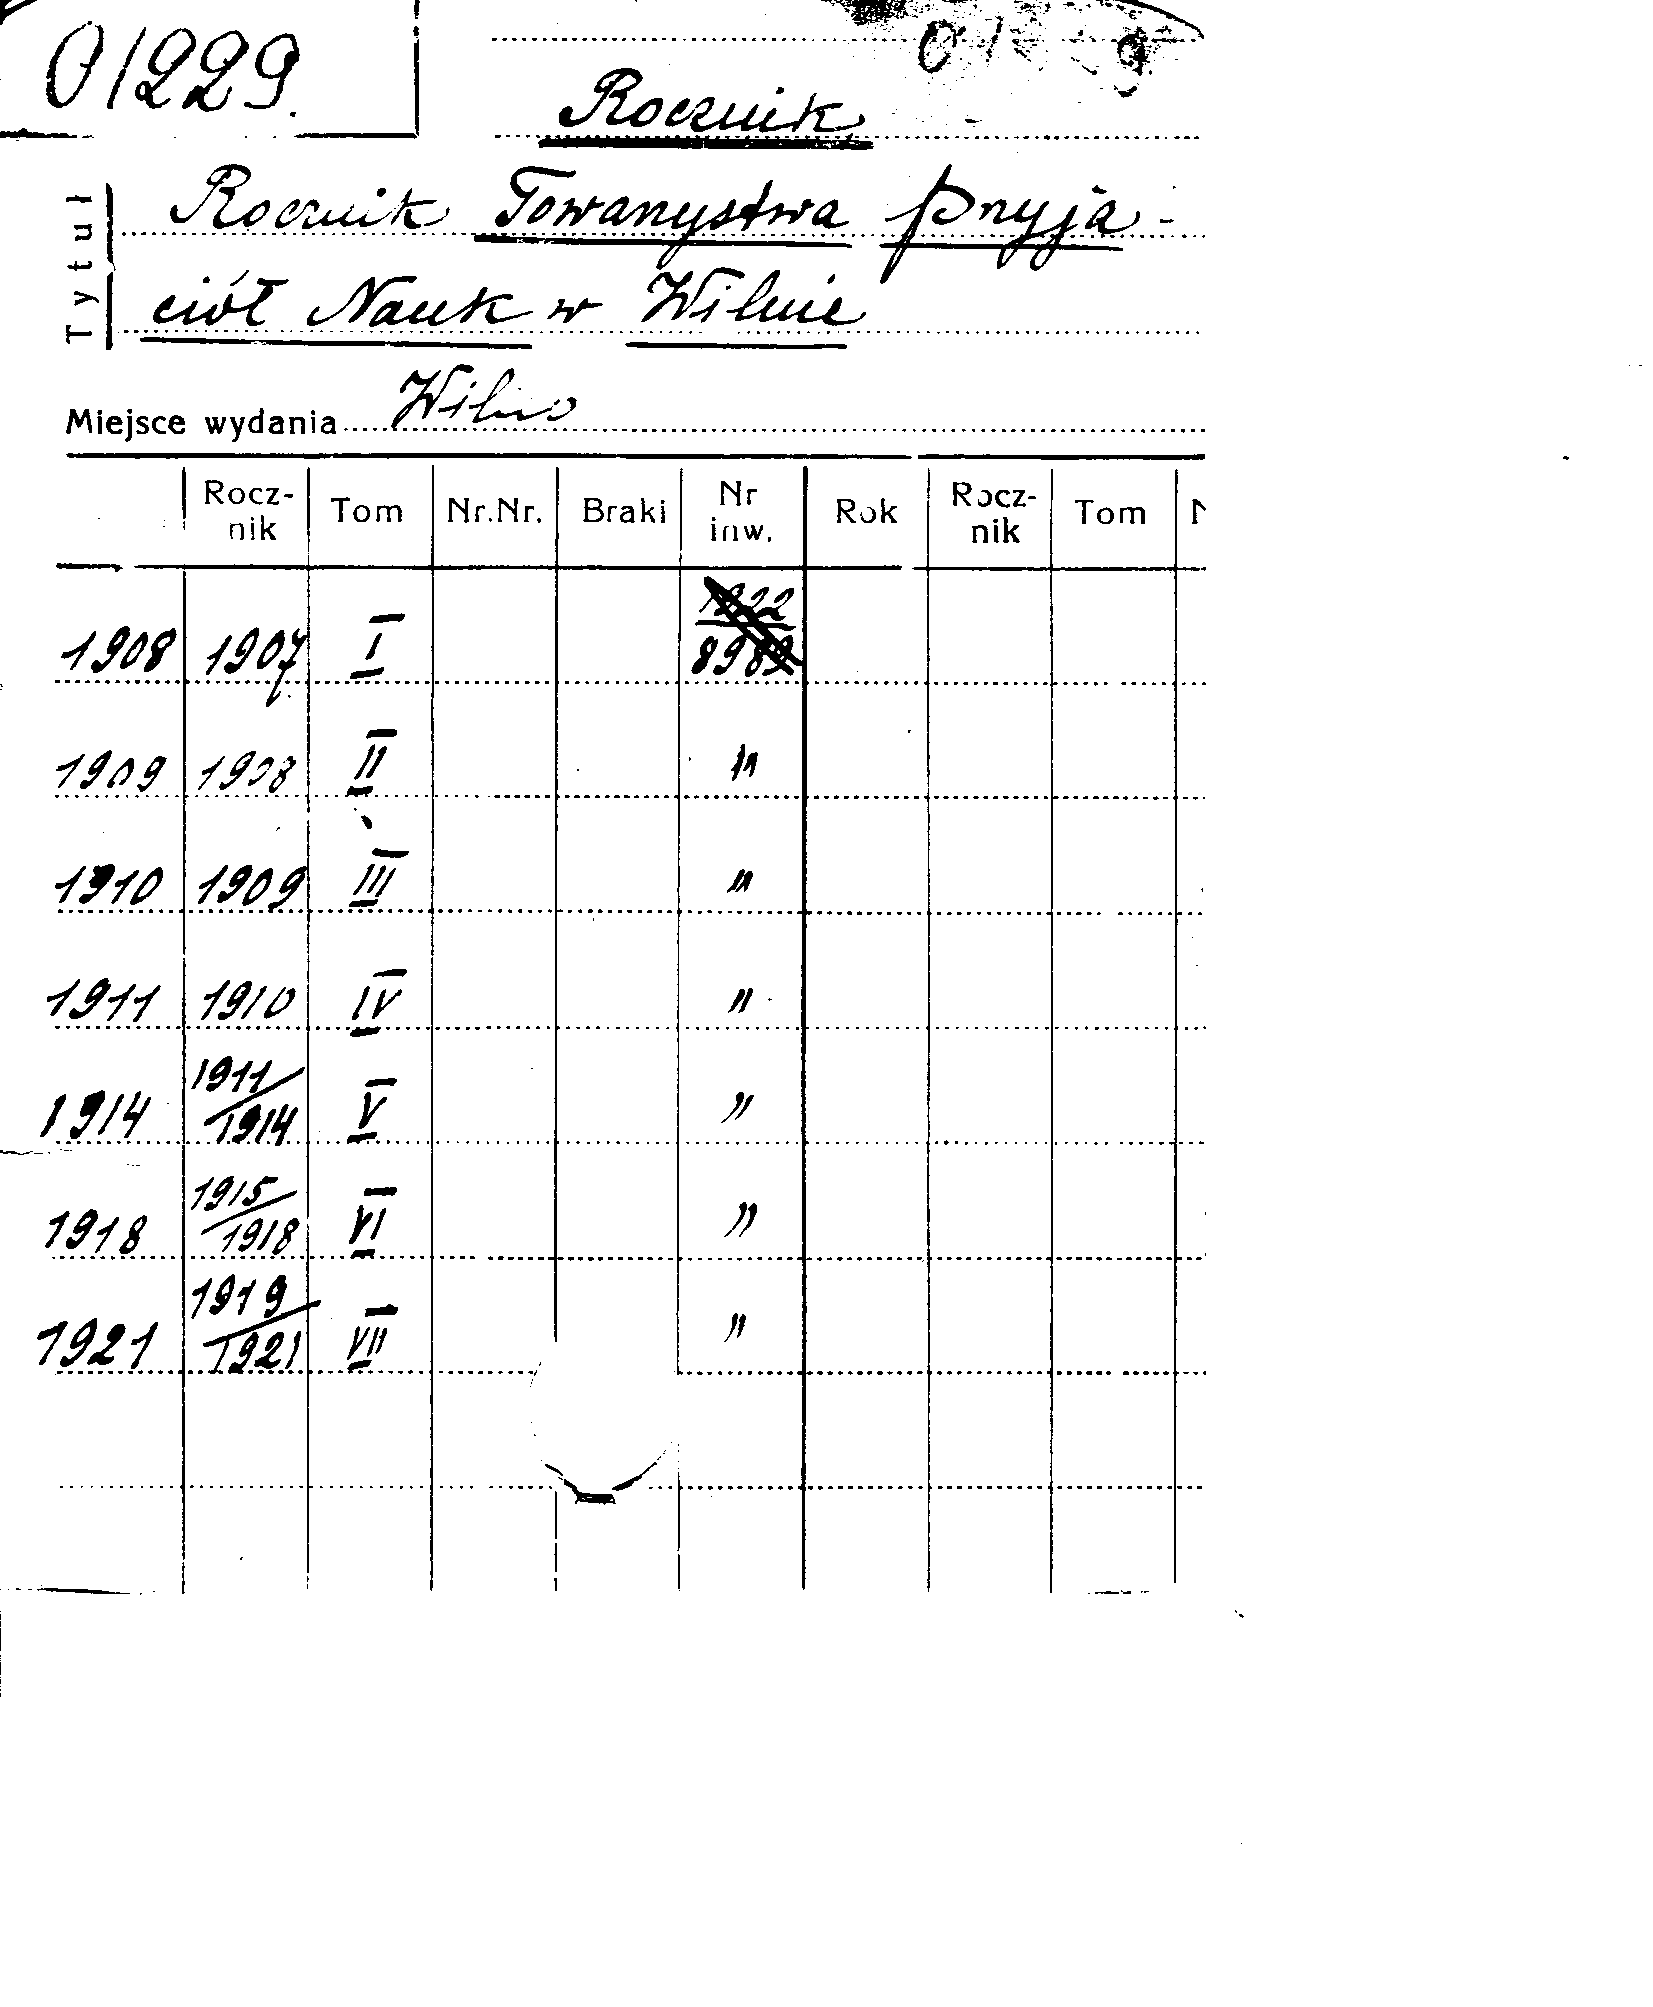 0/229.
Rocznik
Tytuł
Rocznik Towarzystwa Przyja-
ciół Nauk w Wilnie
Miejsce wydania Wilno
Rocz-nik Tom Nr.Nr. Braki Nr inw. Rok Rocz-nik Tom N
1908 1907 I 8989
1909 1908 II "
1910 1909 III "
1911 1910 IV "
1914 1911/1914 V "
1918 1915/1918 VI "
1921 1919/1921 VII "